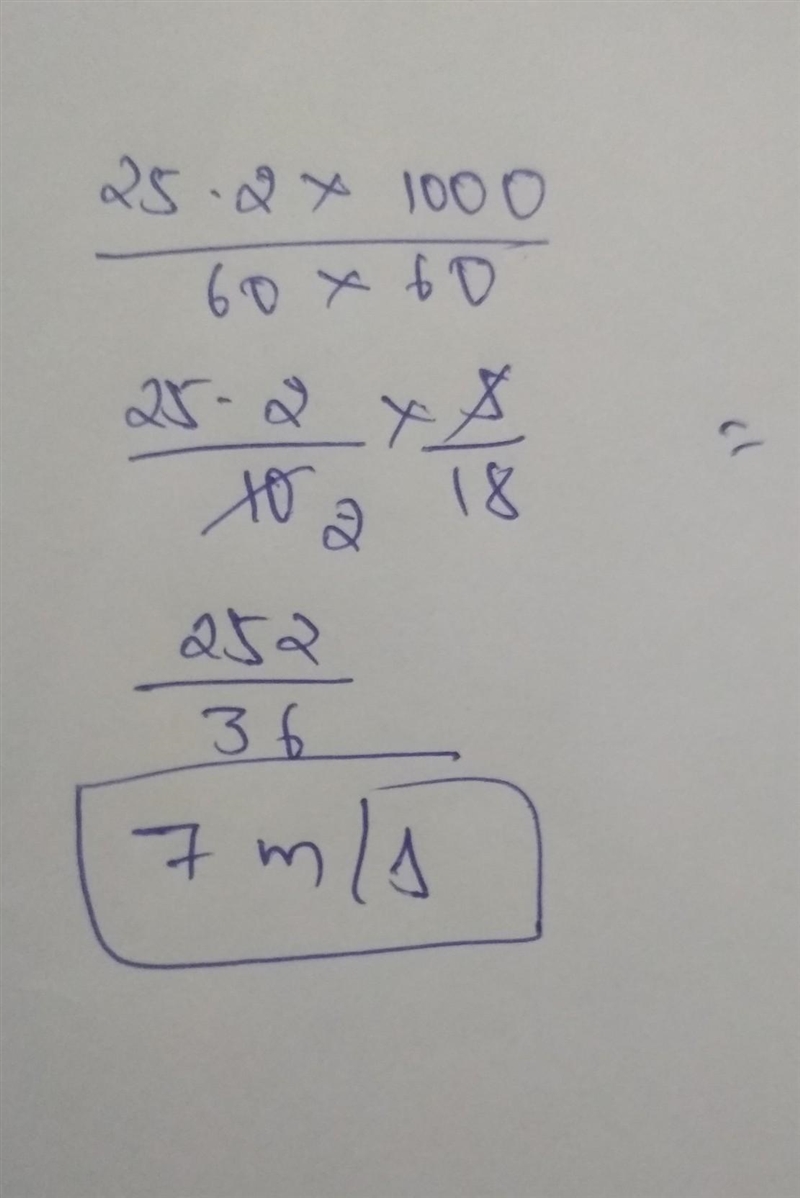 25.2 × 1000
60 × 60
25.2 × 5 =
10 2 18
252
36
7 m/s